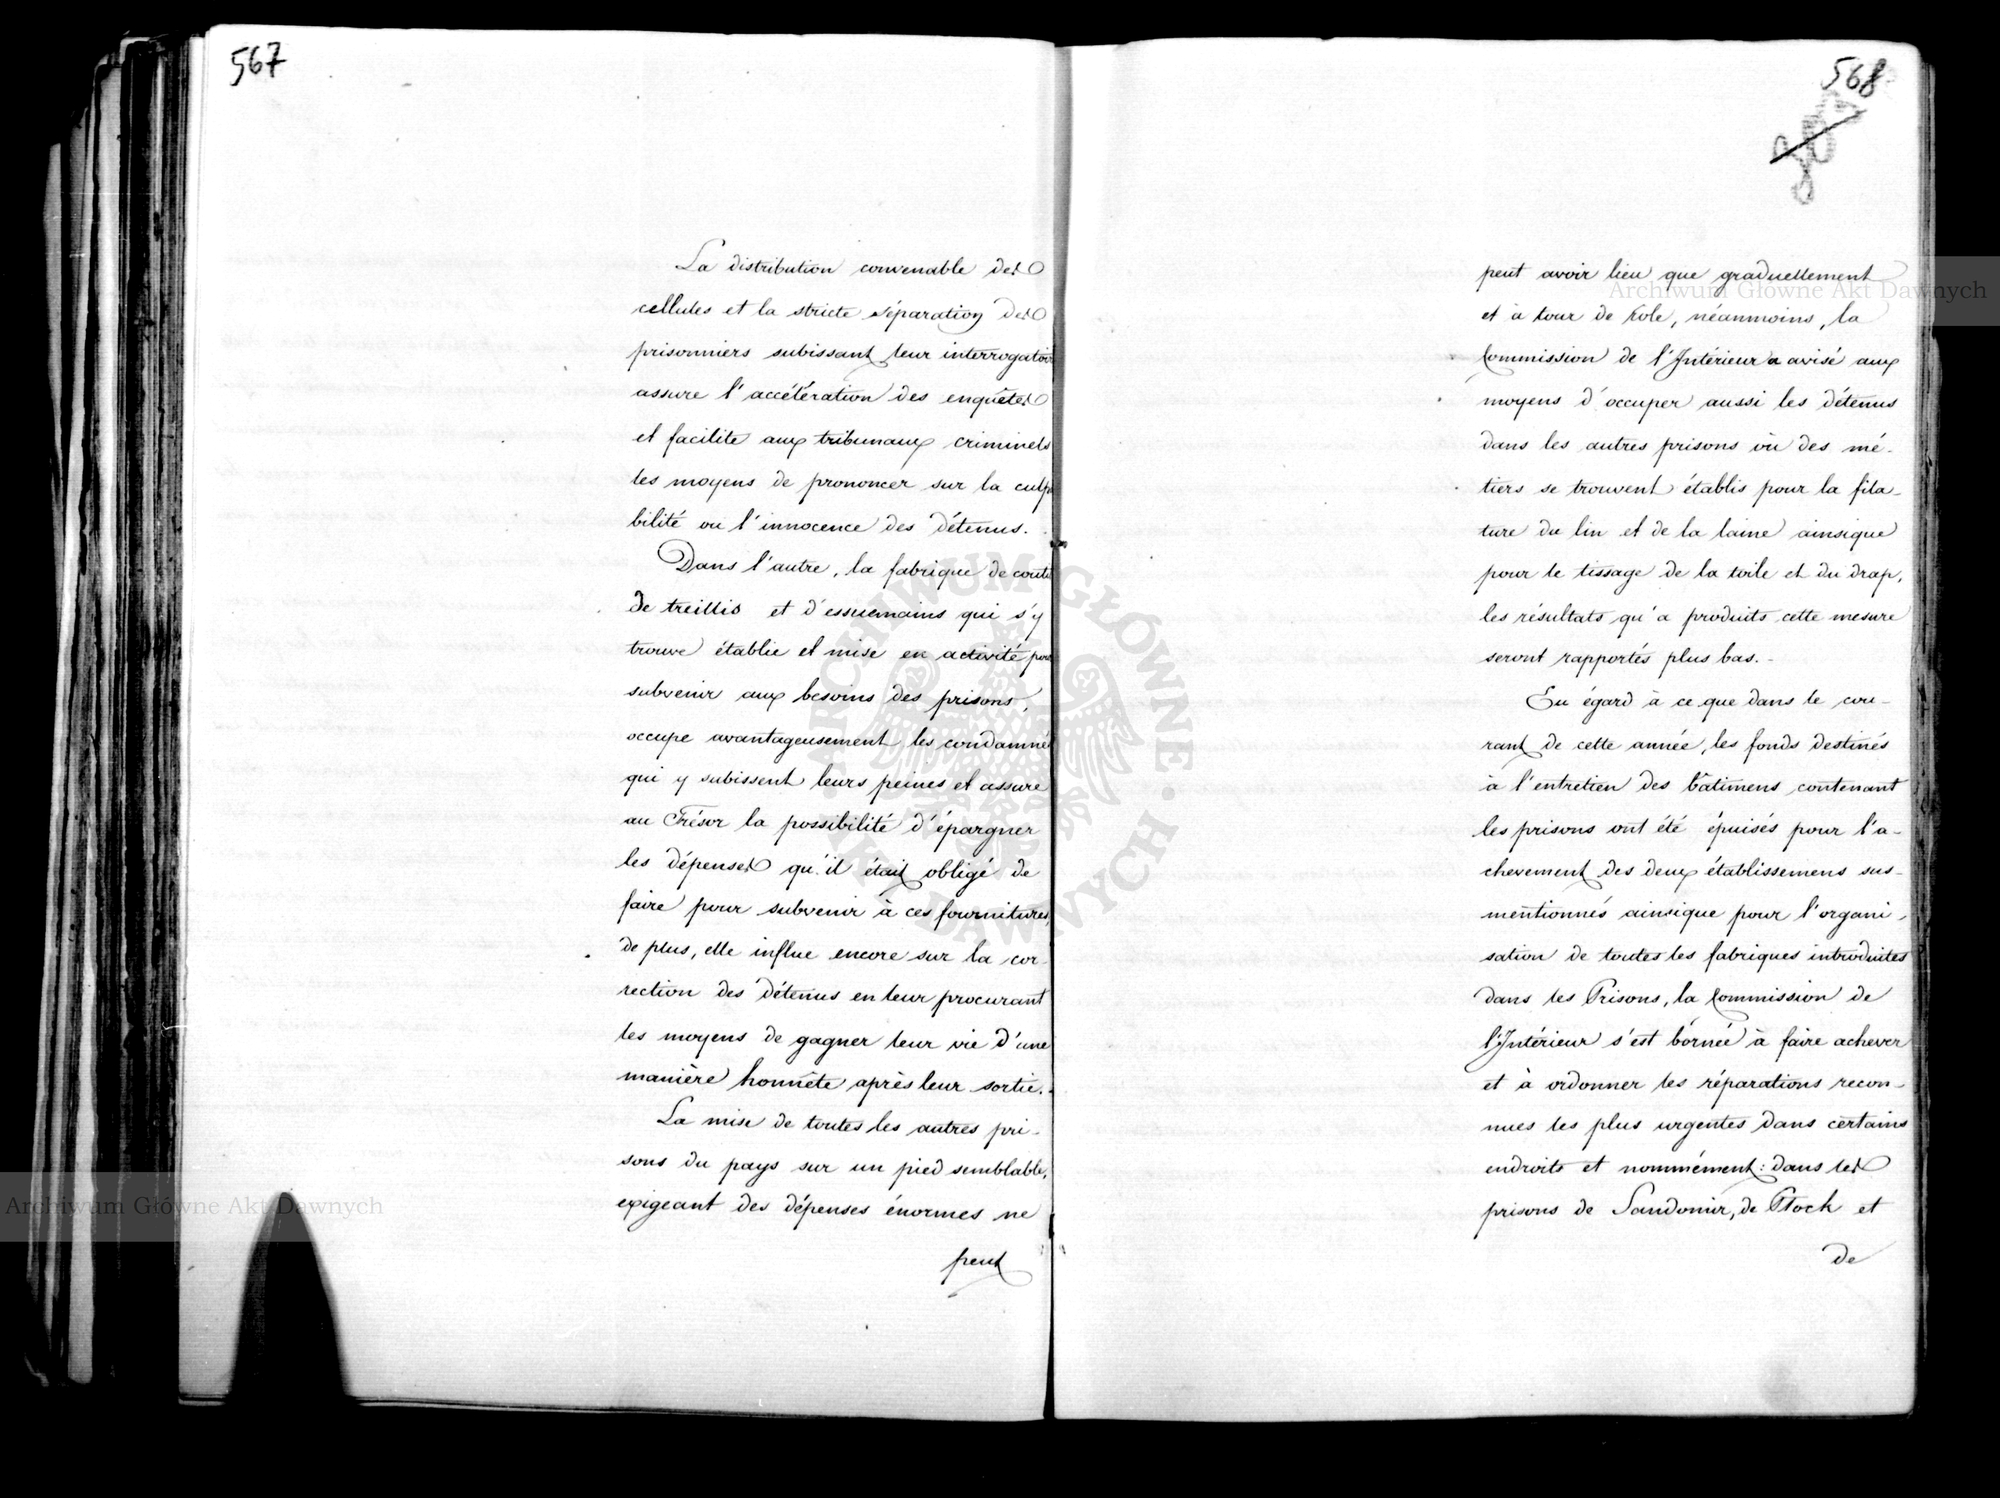 567
La distribution convenable des
cellules et la stricte séparation des
prisonniers subissant leur interrogatoir
assure l'accélération des enquêtes
et facilite aux tribunaux criminels
les moyens de prononcer sur la culpa
bilité ou l'innocence des détenus.
Dans l'autre, la fabrique de coutil
de treillis et d'essuemains qui s'y
trouve établie et mise en activité pour
subvenir aux besoins des prisons,
occupe avantageusement les condamnés
qui y subissent leurs peines et assure
au Trésor la possibilité d'épargner
les dépenses qu'il était obligé de
faire pour subvenir à ces fournitures,
de plus, elle influe encore sur la cor-
rection des détenus en leur procurant
les moyens de gagner leur vie d'une
manière honnête après leur sortie.
La mise de toutes les autres pri-
sons du pays sur un pied semblable,
exigeant des dépenses énormes ne
peut
568
peut avoir lieu que graduellement
et à tour de rôle, néanmoins, la
Commission de l'Intérieur a avisé aux
moyens d'occuper aussi les détenus
dans les autres prisons où des mé-
tiers se trouvent établis pour la fila-
ture du lin et de la laine ainsique
pour le tissage de la toile et du drap,
les résultats qu'a produits cette mesure
seront rapportés plus bas.-
Eu égard à ce que dans le cou-
rant de cette année, les fonds destinés
à l'entretien des bâtimens contenant
les prisons ont été épuisés pour l'a-
chevement des deux établissemens sus-
mentionnés ainsique pour l'organi-
sation de toutes les fabriques introduites
dans les Prisons, la Commission de
l'Intérieur s'est bornée à faire achever
et à ordonner les réparations recon-
nues les plus urgentes dans certains
endroits et nommément: dans les
prisons de Sandomir, de Plock et
de
Archiwum Główne Akt Dawnych
Archiwum Główne Akt Dawnych
ARCHIWUM GŁÓWNE AKT DAWNYCH